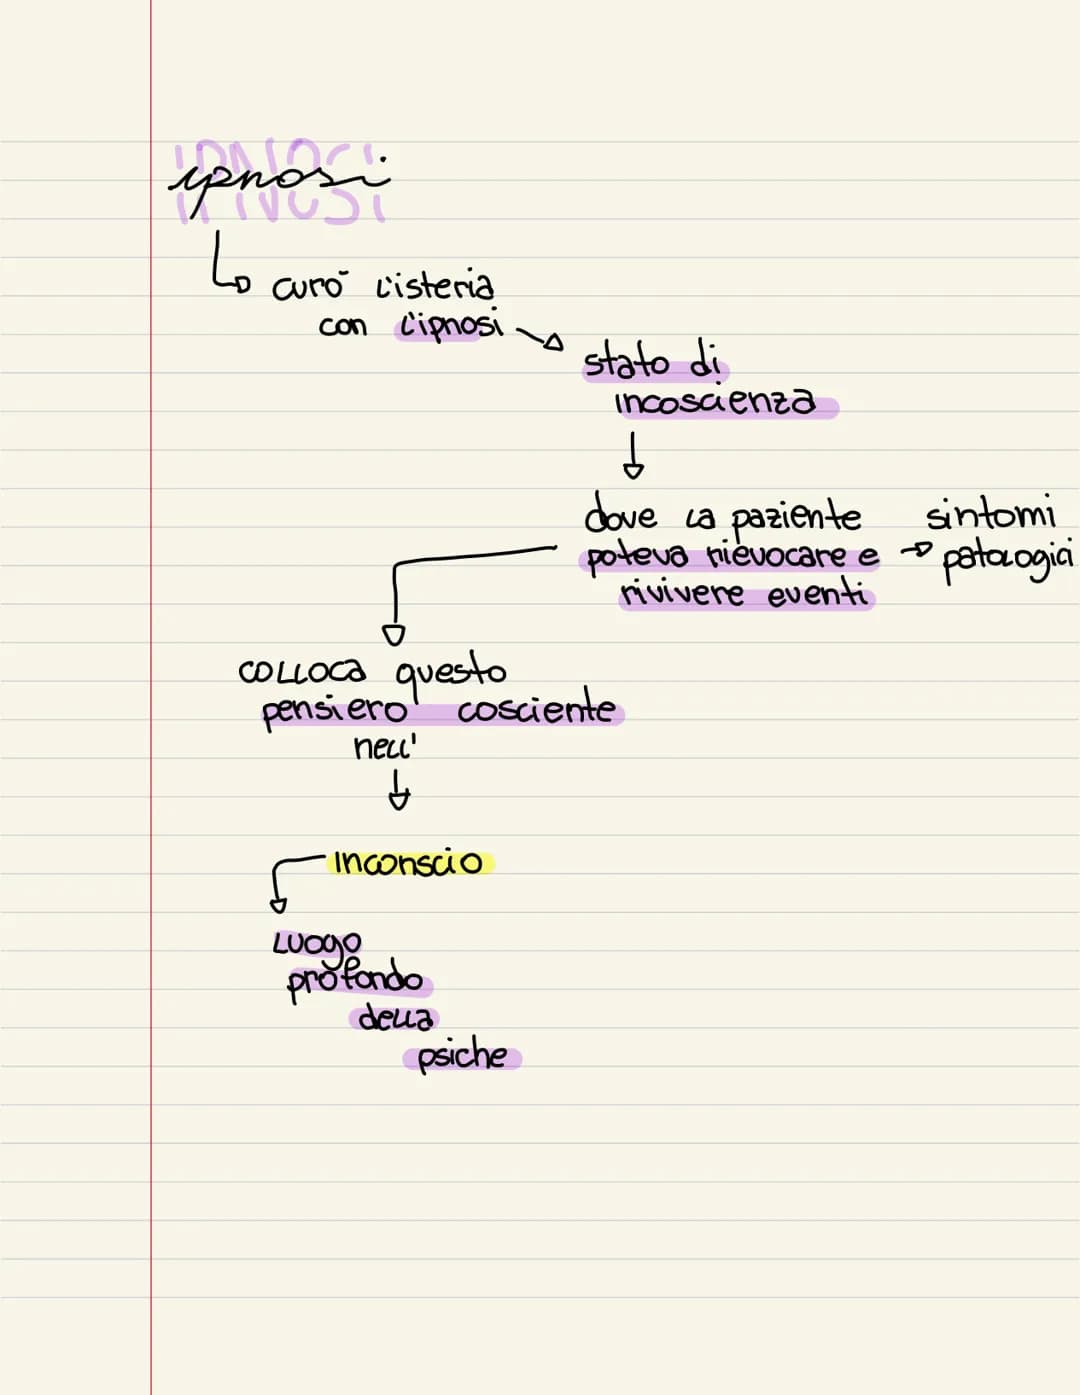 IPNOSI
ipnosi
curò l'isteria
con l'ipnosi
stato di
incoscienza
dove la paziente
poteva rievocare e
rivivere eventi
sintomi
patologici
colloca questo
pensiero cosciente
nell'
inconscio
Luogo
profondo
della
psiche